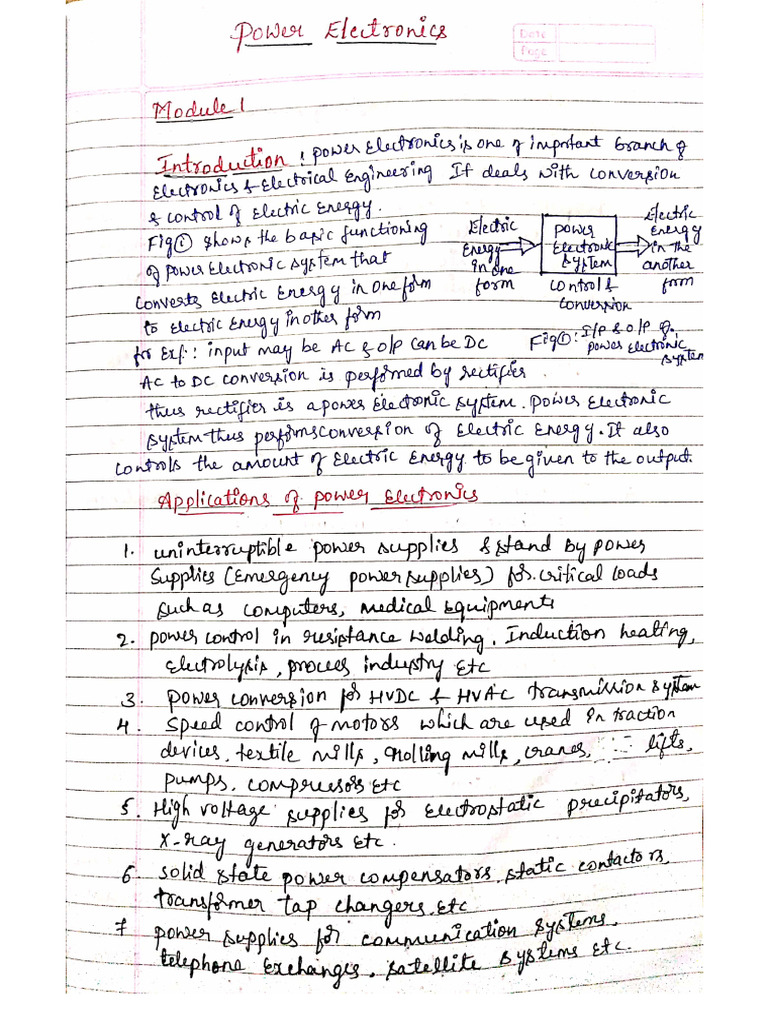 Power Electronics
Date
Page
Module 1
Introduction : power Electronics is one of important branch of
Electronics & Electrical Engineering It deals with conversion
& control of Electric Energy.
Fig ① shows the basic functioning
of power Electronic system that
converts Electric Energy in one form
to Electric Energy in other form
Electric
Energy
in one
form
power
Electronic
system
control &
conversion
Electric
Energy
in the
another
form
Fig ①: I/P & O/P of
power Electronic
system
for Ex: : input may be AC & O/p can be DC
AC to DC conversion is performed by rectifier.
thus rectifier is a power Electronic system. power Electronic
system thus performs conversion of Electric Energy. It also
controls the amount of Electric Energy to be given to the output.
Applications of power Electronics
1. uninterruptible power supplies & stand by power
supplies (Emergency power supplies) for critical loads
such as computers, medical Equipments
2. power control in resistance welding, Induction heating,
Electrolysis, process industry etc
3. power conversion for HVDC & HVAC transmission system
4. speed control of motors which are used in traction
devices, textile mills, rolling mills, cranes, lifts,
pumps, compressors etc
5. High voltage supplies for electrostatic precipitators,
X-ray generators etc.
6. solid state power compensators, static contactors,
transformer tap changers, etc
7 power supplies for communication systems,
telephone Exchanges, satellite systems etc.